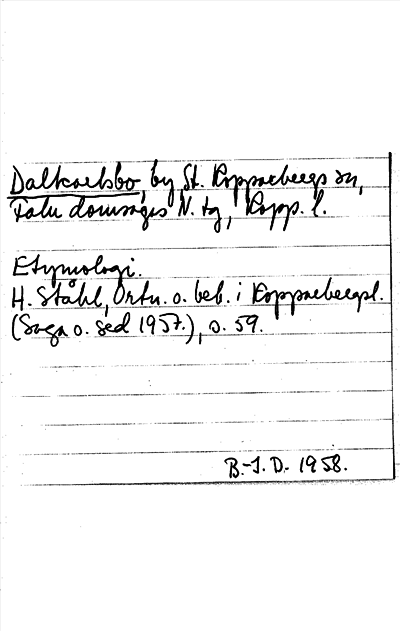 Dalkarlsbo, by St. Kopparbergs sn,
Falu domsagas N. tg, Kopp. l.
Etymologi.
H. Ståhl, Ortn. o. beb. i Kopparbergsl.
(Saga o. sed 1957.), s. 59.
B.-J. D. 1958.